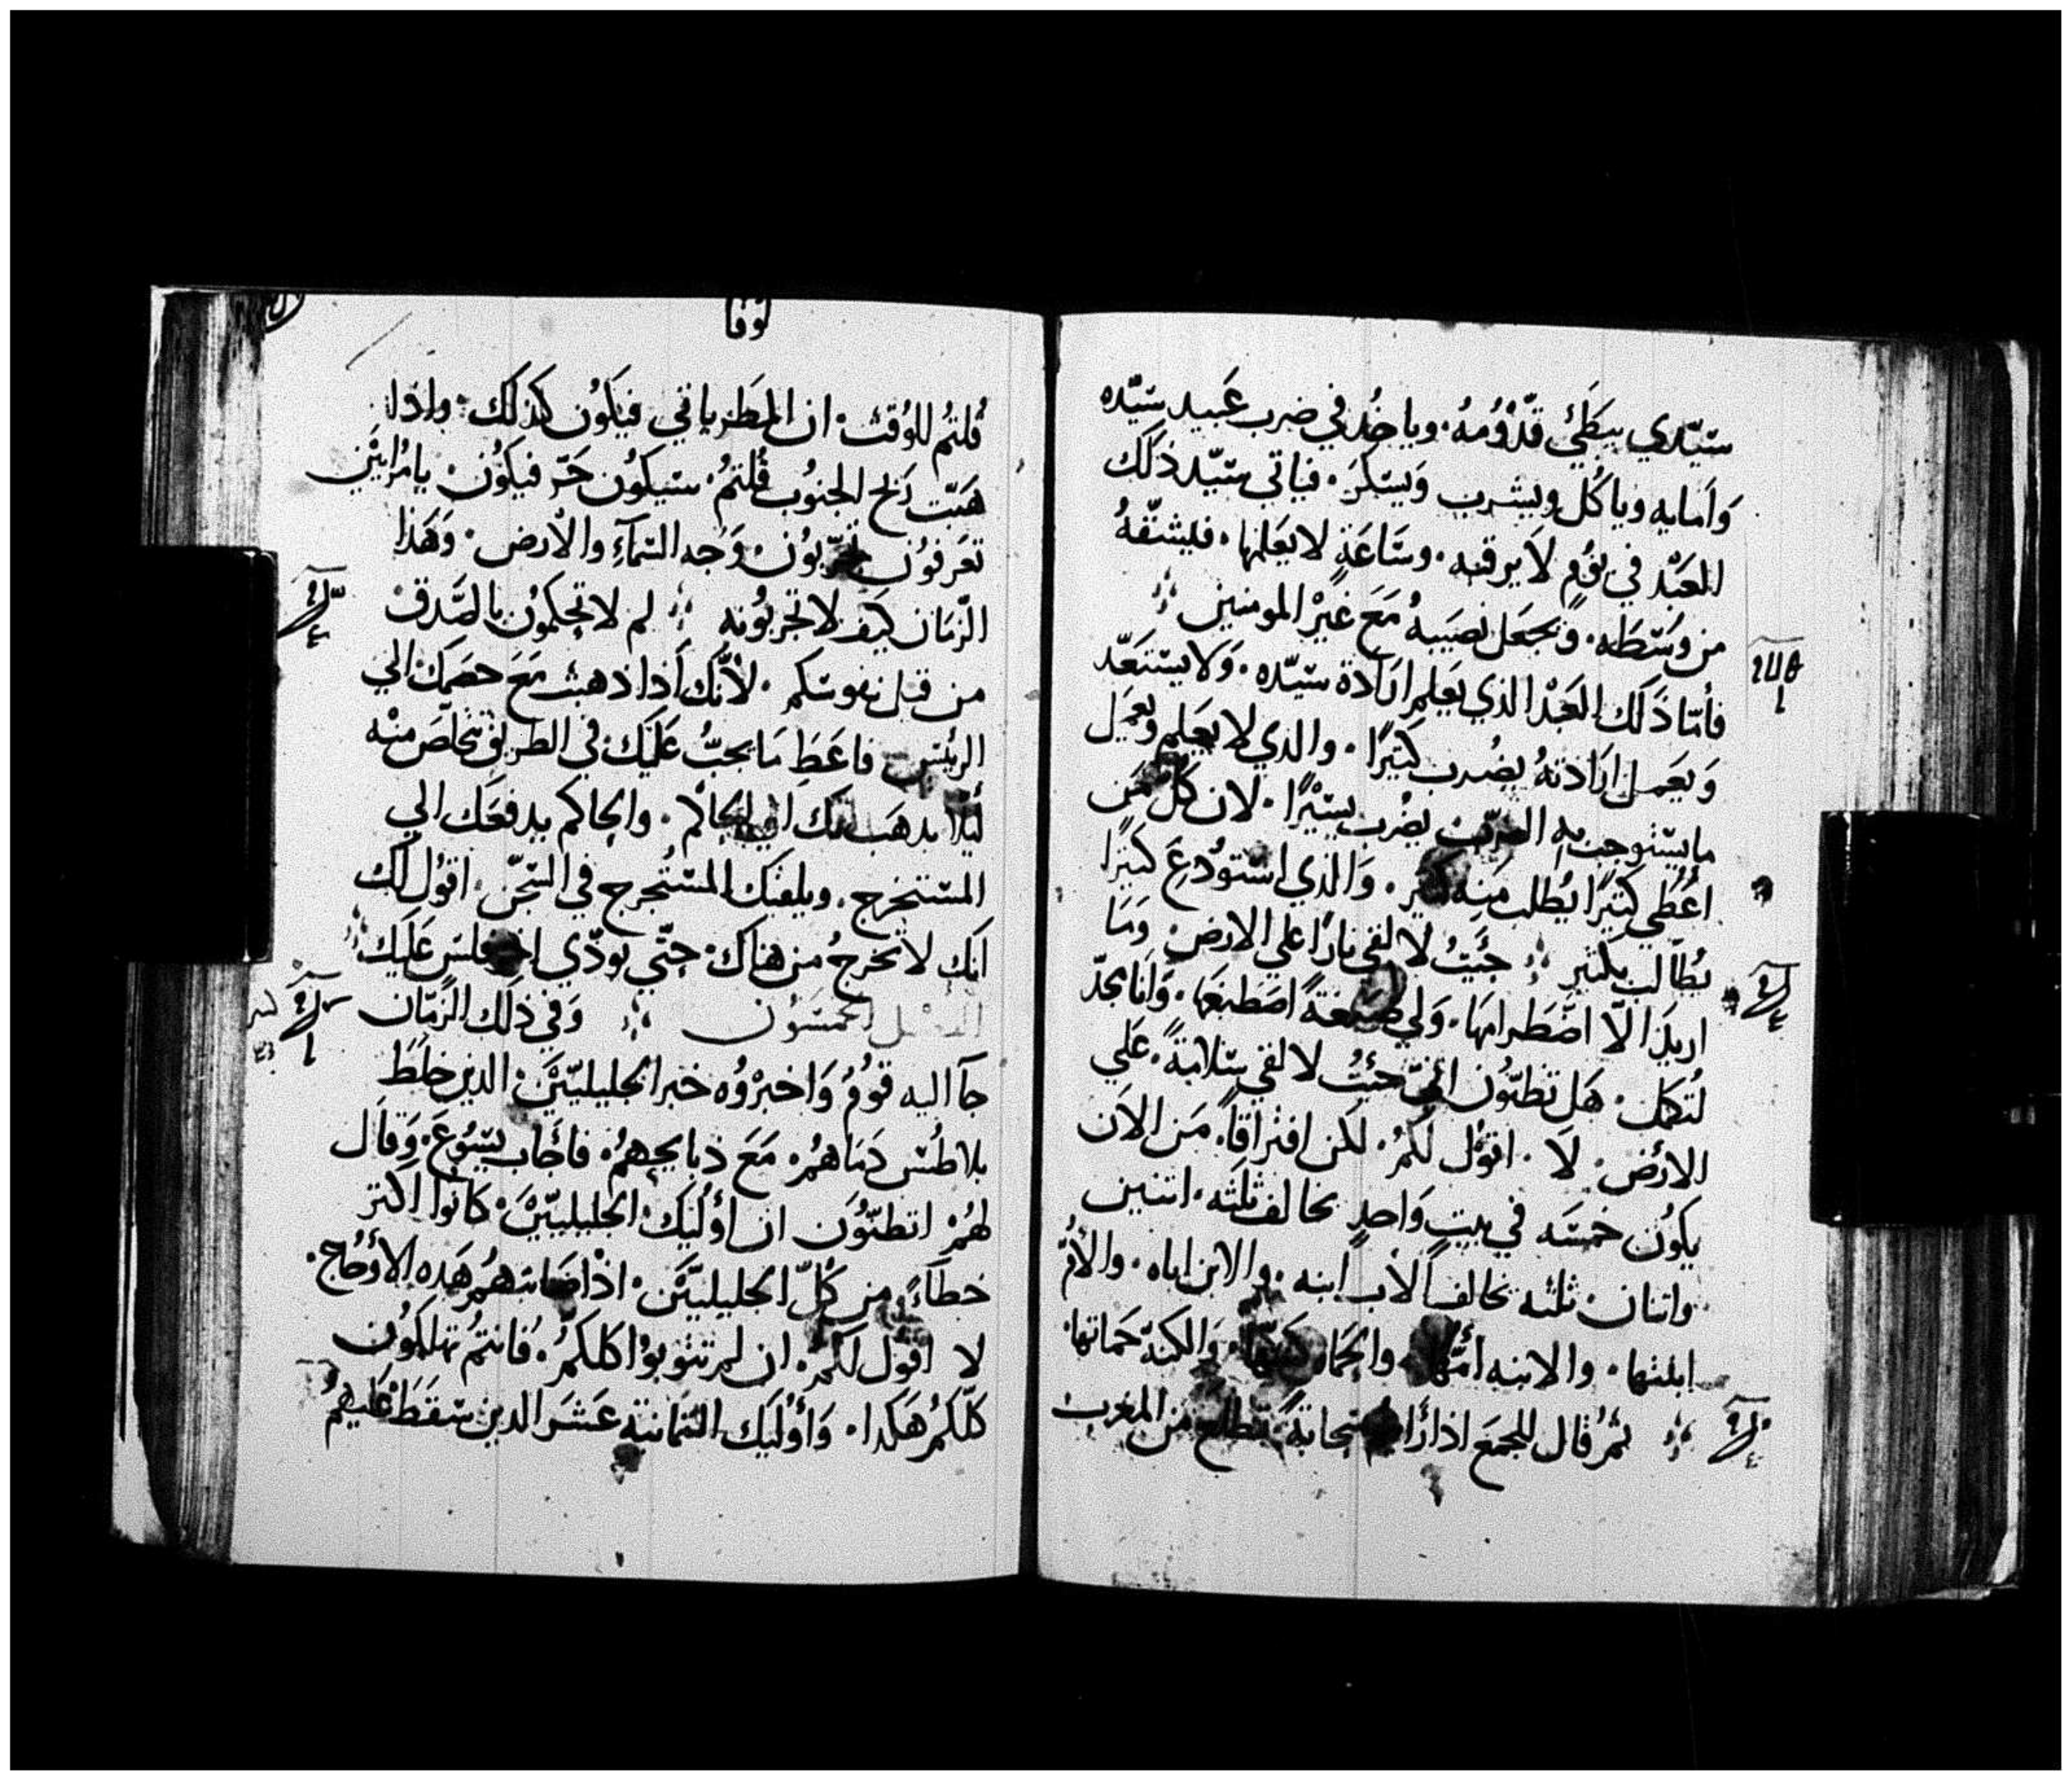 سيّدي يبطئ قدُومُهُ. وياخُد في ضرب عَبيد سيّده
وَامايه وياكُل ويشرب وَيسكرَ. فياتي سيّد ذلك
العَبْد في يَومٍ لاَ يرقبه. وسَاعَةٍ لا يَعَلمها. فليشقّهُ
من وسَطَه. وَيجعَل نصَيبهُ مَعَ غيَرْ المومنين
فأمّا ذَلك العَبْد الذي يَعَلم ارَادة سيّده. وَلا يستعَدّ
وَيعَمل ارَادتهُ يضُرب كثيرًا. والذي لا يعَلم ويعَمل
ما يستوجب به الضرب يضُرب يسيْرًا. لان كُلّ مَن
اعُطي كثيرًا يُطلب منه كثير. وَالذي استَودُعَ كثيرًا
يُطالب بكثير جئيتُ لالقي نارًا علي الارض وَمَا
اريدَ الاّ اضَطرامهَا. وَلي صبغةً اصَطبغهَا. وَانَا مجدّ
لتُكمل. هَل تظنّوُن انّي جئتُ لالقي سَلامَةً. عَلي
الارض. لاَ. اقوُل لكُمُ. لكن افتراقاً. مَن الاَن
يكوُن خمسَه في بيت وَاحدٍ يخالف ثلثه. اثنين
واثنان ثلثه يخالف الأب ابنه. والابن اباه. والأمُّ
ابنتها. والابنه أمّها. والحَماه كنتها. وَالكنة حَماتها.
ثمُ قال للجمعَ اذا رَايتم سحابَةً تطلع من المغرب
لوقا
قُلتُم للوُقت. ان المطَر ياتي فيَكوُن كذلَك. واذا
هَبّت رَيح الجنوُب قُلتُم. سيكوُن حَرّ فيكَوُن. يا مُرايَين
تعَرفوُن تجرّبوُن. وَجه السمآءِ والأرض. وَهَذا
الزّمَان كيَف لا تجربوُنه لم لا تحكموُن بالصّدق
من قبل نفوسَكم. لأنّك اَذا ذهبت مَعَ خصَمك الي
الريئس فاعَطِ مَا يجبُ عَليَك في الطريق تتخلّصَ منْه
ليَلا يدهَب بك الي الحاكم. والحاكم يدفعَك الي
المستخرج. ويلقيَك المستُخرج في السَجّن. اقوُل لك
انَك لا تخرجُ من هناك. حتّي توذّي اخر فلس عَليَك
الفصل الخمسَوُن وَفي ذلك الزمّان
جآ اليه قوُمُ وَاخبرْوُه خبر الجليليّيَن. الدين خلطَ
بلاطُس دَمَاهُمُ. مَعَ ذبايحهِمُ. فاجَاب يسَوُعَ. وَقال
لهُمْ اتظنّوُن ان اوُليَك الجليليّيَن. كانوا اكثر
خطآءً. من كُلّ الجليليّيَن. اذْ اصَابتهمُ هَده الأوُجاع.
لا اقوُل لكمُ. ان لم تتوُبوُا كلكمُ. فانتمُ تهلكوُن
كلّكمُ هَكدا. وَاوُليَك الثمَانية عَشرَ الدين سقطَ عَليهمُ